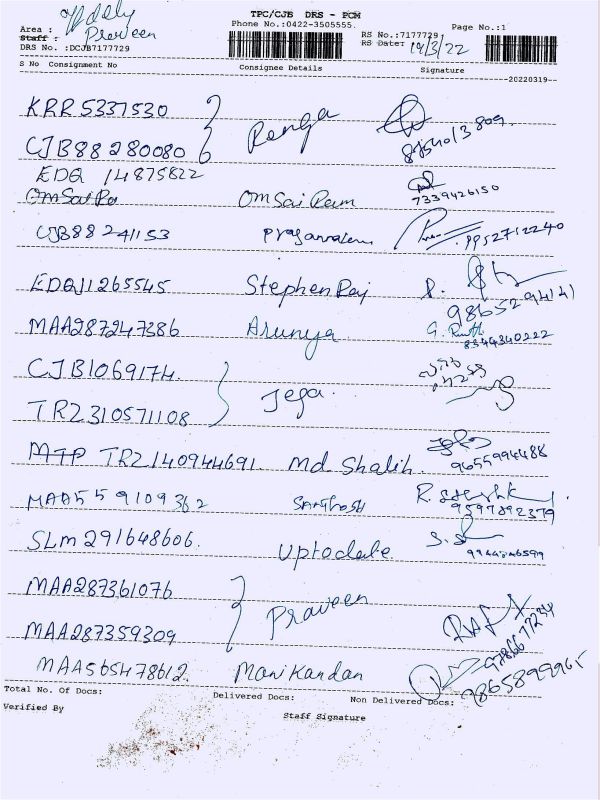 TPC/CJB DRS - PCM
Phone No.:0422-3505555.
Area :
Staff : Praveen
DRS No. :DCJB7177729
RS No.:7177729
RS Date: 19/3/22
Page No.:1
S No Consignment No Consignee Details Signature
--20220319--
KRR5337530
CJB88280080 Renga 8754013809.
EDQ 14875822
OmSaiRa OmSaiRam 7339426150
CJB88241153
EDQ11265545 Stephen Raj 9865294141
MAA287247386 Arunya 8344340222
CJB1069174.
TRZ310571108 Jega.
MTP TRZ140944691. Md Shalih. 9655994488
MAA559109362 Santhosh 9597892379
SLM291648606. Uptodate
MAA287361076
MAA287359309 Praveen
MAA565478612. Manikandan 9865899965
Total No. Of Docs: Delivered Docs: Non Delivered Docs:
Verified By Staff Signature